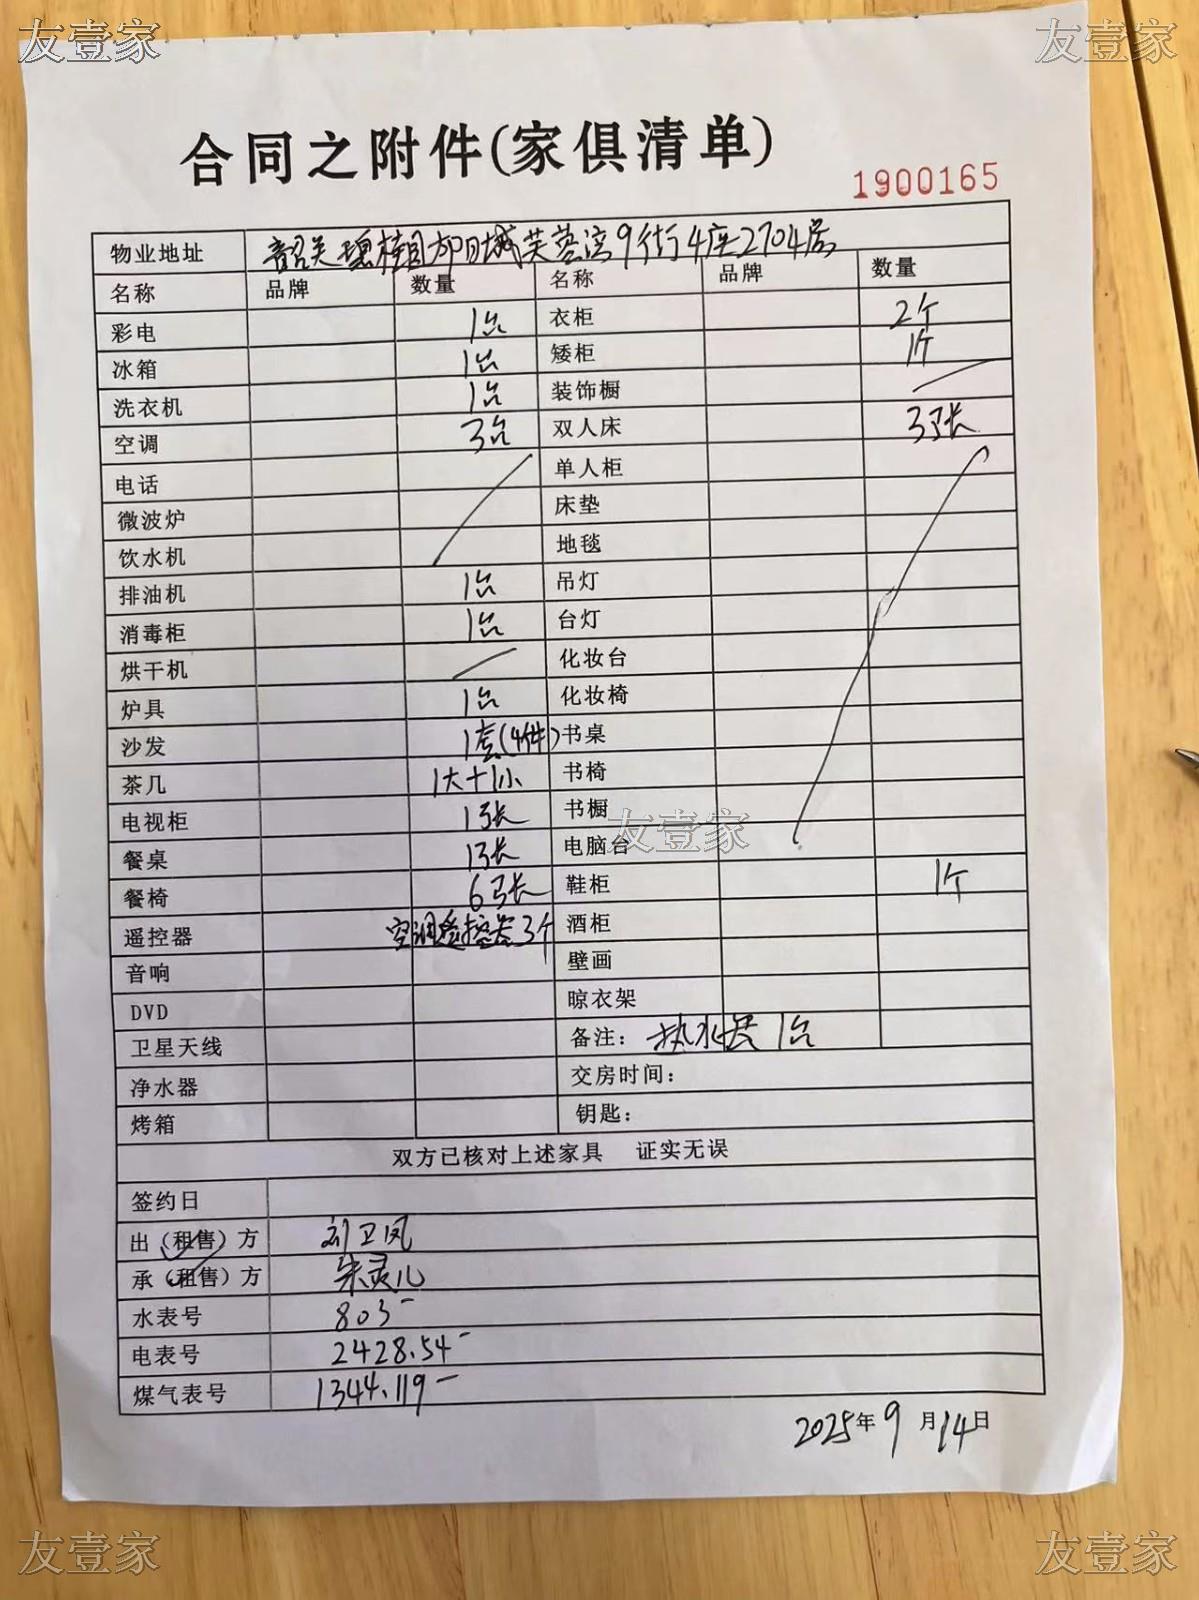 友壹家 友壹家
合同之附件(家俱清单)
1900165
物业地址 韶关碧桂园太阳城芙蓉湾9街4座2704房
名称 品牌 数量 名称 品牌 数量
彩电 1台 衣柜 2个
冰箱 1台 矮柜 1个
洗衣机 1台 装饰橱
空调 3台 双人床 3张
电话 单人柜
微波炉 床垫
饮水机 地毯
排油机 1台 吊灯
消毒柜 1台 台灯
烘干机 化妆台
炉具 1台 化妆椅
沙发 1套(4件) 书桌
茶几 1大+1小 书椅
电视柜 1张 书橱
友壹家
餐桌 1张 电脑台
餐椅 6张 鞋柜 1个
遥控器 空调遥控器3个 酒柜
音响 壁画
DVD 晾衣架
卫星天线 备注: 热水器 1台
净水器 交房时间:
烤箱 钥匙:
双方已核对上述家具 证实无误
签约日
出(租售)方 刘卫凤
承(租售)方 朱灵儿
水表号 803-
电表号 2428.54-
煤气表号 1344.119-
2025年9月14日
友壹家 友壹家